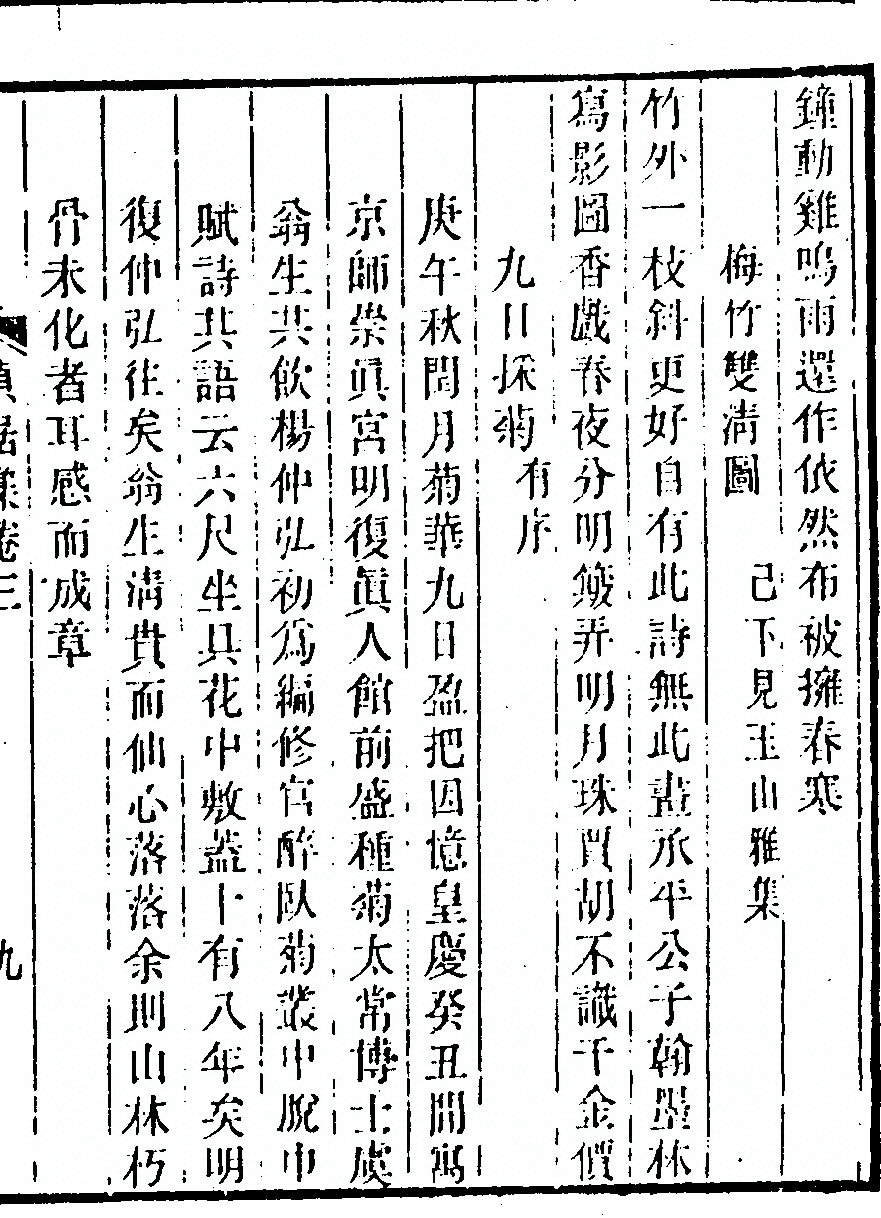 鐘動雞鳴雨還作依然布被擁春寒
梅竹雙淸圖 已下見玉山雅集
竹外一枝斜更好自有此詩無此畫承平公子翰墨林
寫影圖香戲春夜分明簸弄明月珠賈胡不識千金價
九日採菊有序
庚午秋閏月菊華九日盈把因憶皇慶癸丑間寓
京師崇眞宮明復眞人館前盛種菊太常博士虞
翁生共飲楊仲弘初爲編修官醉臥菊叢中脫巾
賦詩其語云六尺坐具花中敷蓋十有八年矣明
復仲弘往矣翁生淸貴而仙心落落余則山林朽
骨未化者耳感而成章
貞居集卷三
九